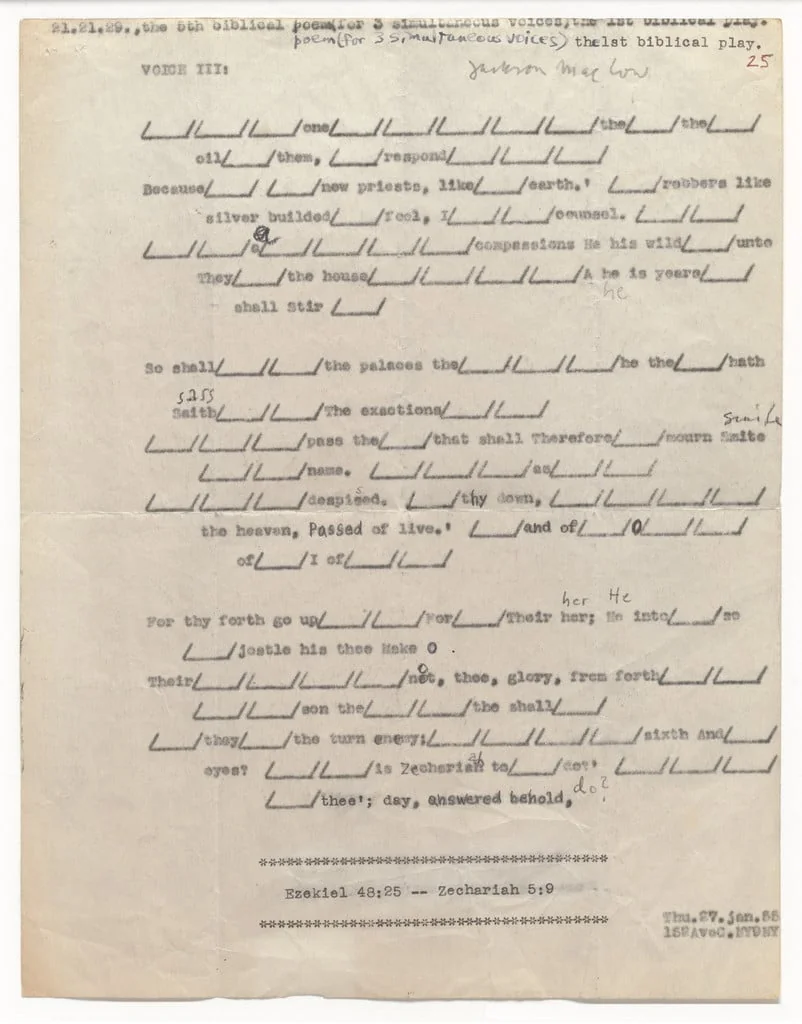 21.21.29.,the 5th biblical poem(for 3 simultaneous voices)the 1st biblical play.
poem(for 3 simultaneous voices) the1st biblical play.
25
VOICE III:
Jackson Mac Low
/___//___//___/one/___//___//___//___//___/the/___/the/___/
oil/___/them, /___/respond/___//___//___/
Because/___/ /___/new priests, like/___/earth.' /___/robbers like
silver builded/___/feel, I/___//___/counsel. /___//___/
/___//___/a/___//___//___//___/compassions He his wild/___/unto
They/___/the house/___//___//___//___/A he is years/___/
he
shall Stir /___/
So shall/___//___/the palaces the/___//___//___/he the/___/hath
sass
Saith/___//___/The exactions/___//___/
smite
/___//___//___/pass the/___/that shall Therefore/___/mourn Smite
/___//___/name. /___//___//___/as/___//___/
/___//___//___/despised. /___/thy down, /___//___//___//___/
the heaven, Passed of live.' /___/and of/___/O/___//___/
of/___/I of/___//___/
her He
For thy forth go up/___//___/For/___/Their her; He into/___/so
/___/jostle his thee Make O .
Their/___//___//___//___/not, thee, glory, from forth/___//___/
/___//___/son the/___//___/the shall/___/
/___/they/___/the turn enemy:/___//___//___//___/sixth And/___/
eyes? /___//___/is Zechariah to/___/do?' /___//___//___/
do?
/___/thee'; day, answered behold,
***********************************
Ezekiel 48:25 -- Zechariah 5:9
***********************************
Thu.27.jan.55
152AveC.NY9NY